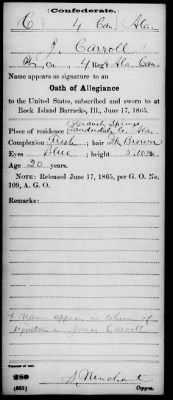 Confederate.
C | 4 Cav | Ala.
J. Carroll
Co. , 4 Reg't Ala. Cav.
Name appears as signature to an
Oath of Allegiance
to the United States, subscribed and sworn to at
Rock Island Barracks, Ill., June 17, 1865.
Place of residence Lauderdale Co. Ala.
Complexion Fresh ; hair Dk Brown
Eyes Blue ; height 5 ft. 10 in.
Age 20 years.
NOTE: Released June 17, 1865, per G. O. No.
109, A. G. O.
Remarks:
Name appears in column of
signature as Jonas Carroll
Number of roll:
289
(655)
Copyist.